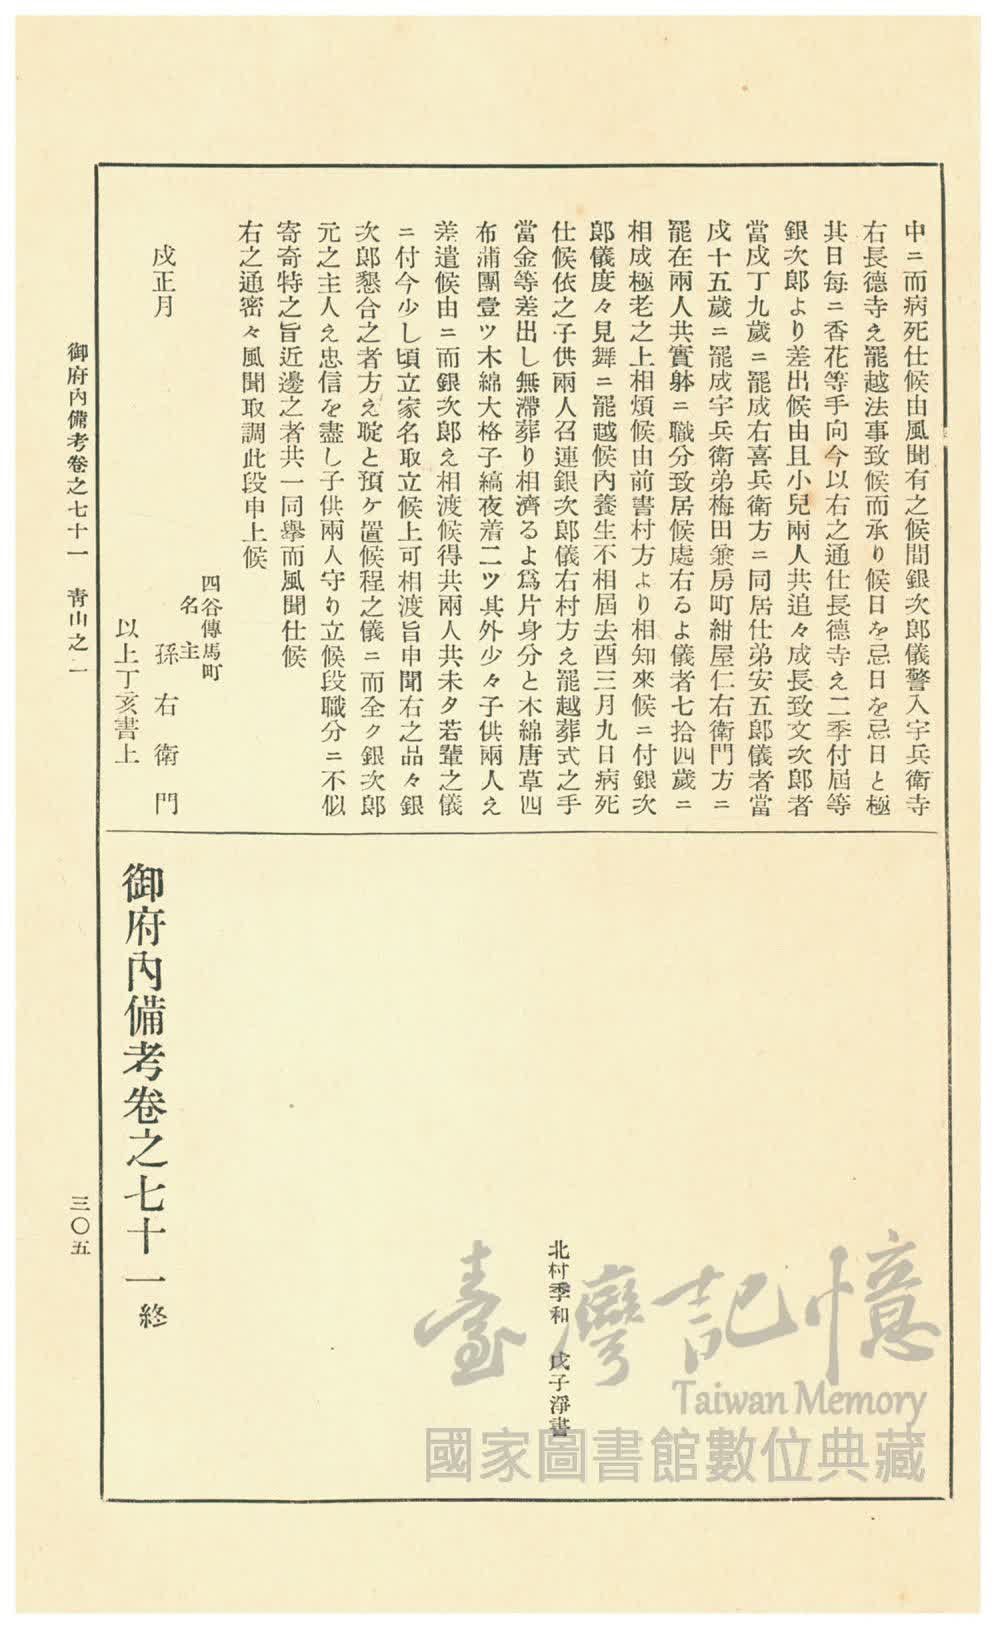 中ニ而病死仕候由風聞有之候間銀次郎儀警入宇兵衛寺
右長德寺え罷越法事致候而承り候日を忌日を忌日と極
其日每ニ香花等手向今以右之通仕長德寺え二季付屆等
銀次郎より差出候由且小兒兩人共追々成長致文次郎者
當戌丁九歲ニ罷成右喜兵衛方ニ同居仕弟安五郎儀者當
戌十五歲ニ罷成宇兵衛弟梅田兼房町紺屋仁右衛門方ニ
罷在兩人共實躰ニ職分致居候處右るよ儀者七拾四歲ニ
相成極老之上相煩候由前書村方より相知來候ニ付銀次
郎儀度々見舞ニ罷越候內養生不相屆去酉三月九日病死
仕候依之子供兩人召連銀次郎儀右村方え罷越葬式之手
當金等差出し無滯葬り相濟るよ爲片身分と木綿唐草四
布蒲團壹ツ木綿大格子縞夜着二ツ其外少々子供兩人え
差遣候由ニ而銀次郎え相渡候得共兩人共未タ若輩之儀
ニ付今少し頃立家名取立候上可相渡旨申聞右之品々銀
次郎懇合之者方え聢と預ケ置候程之儀ニ而全ク銀次郎
元之主人え忠信を盡し子供兩人守り立候段職分ニ不似
寄奇特之旨近邊之者共一同擧而風聞仕候
右之通密々風聞取調此段申上候
四谷傳馬町
名主
戌正月 孫右衛門
以上丁亥書上
北村季和 戊子淨書
御府內備考卷之七十一終
御府內備考卷之七十一 靑山之二
三〇五
臺灣記憶
Taiwan Memory
國家圖書館數位典藏